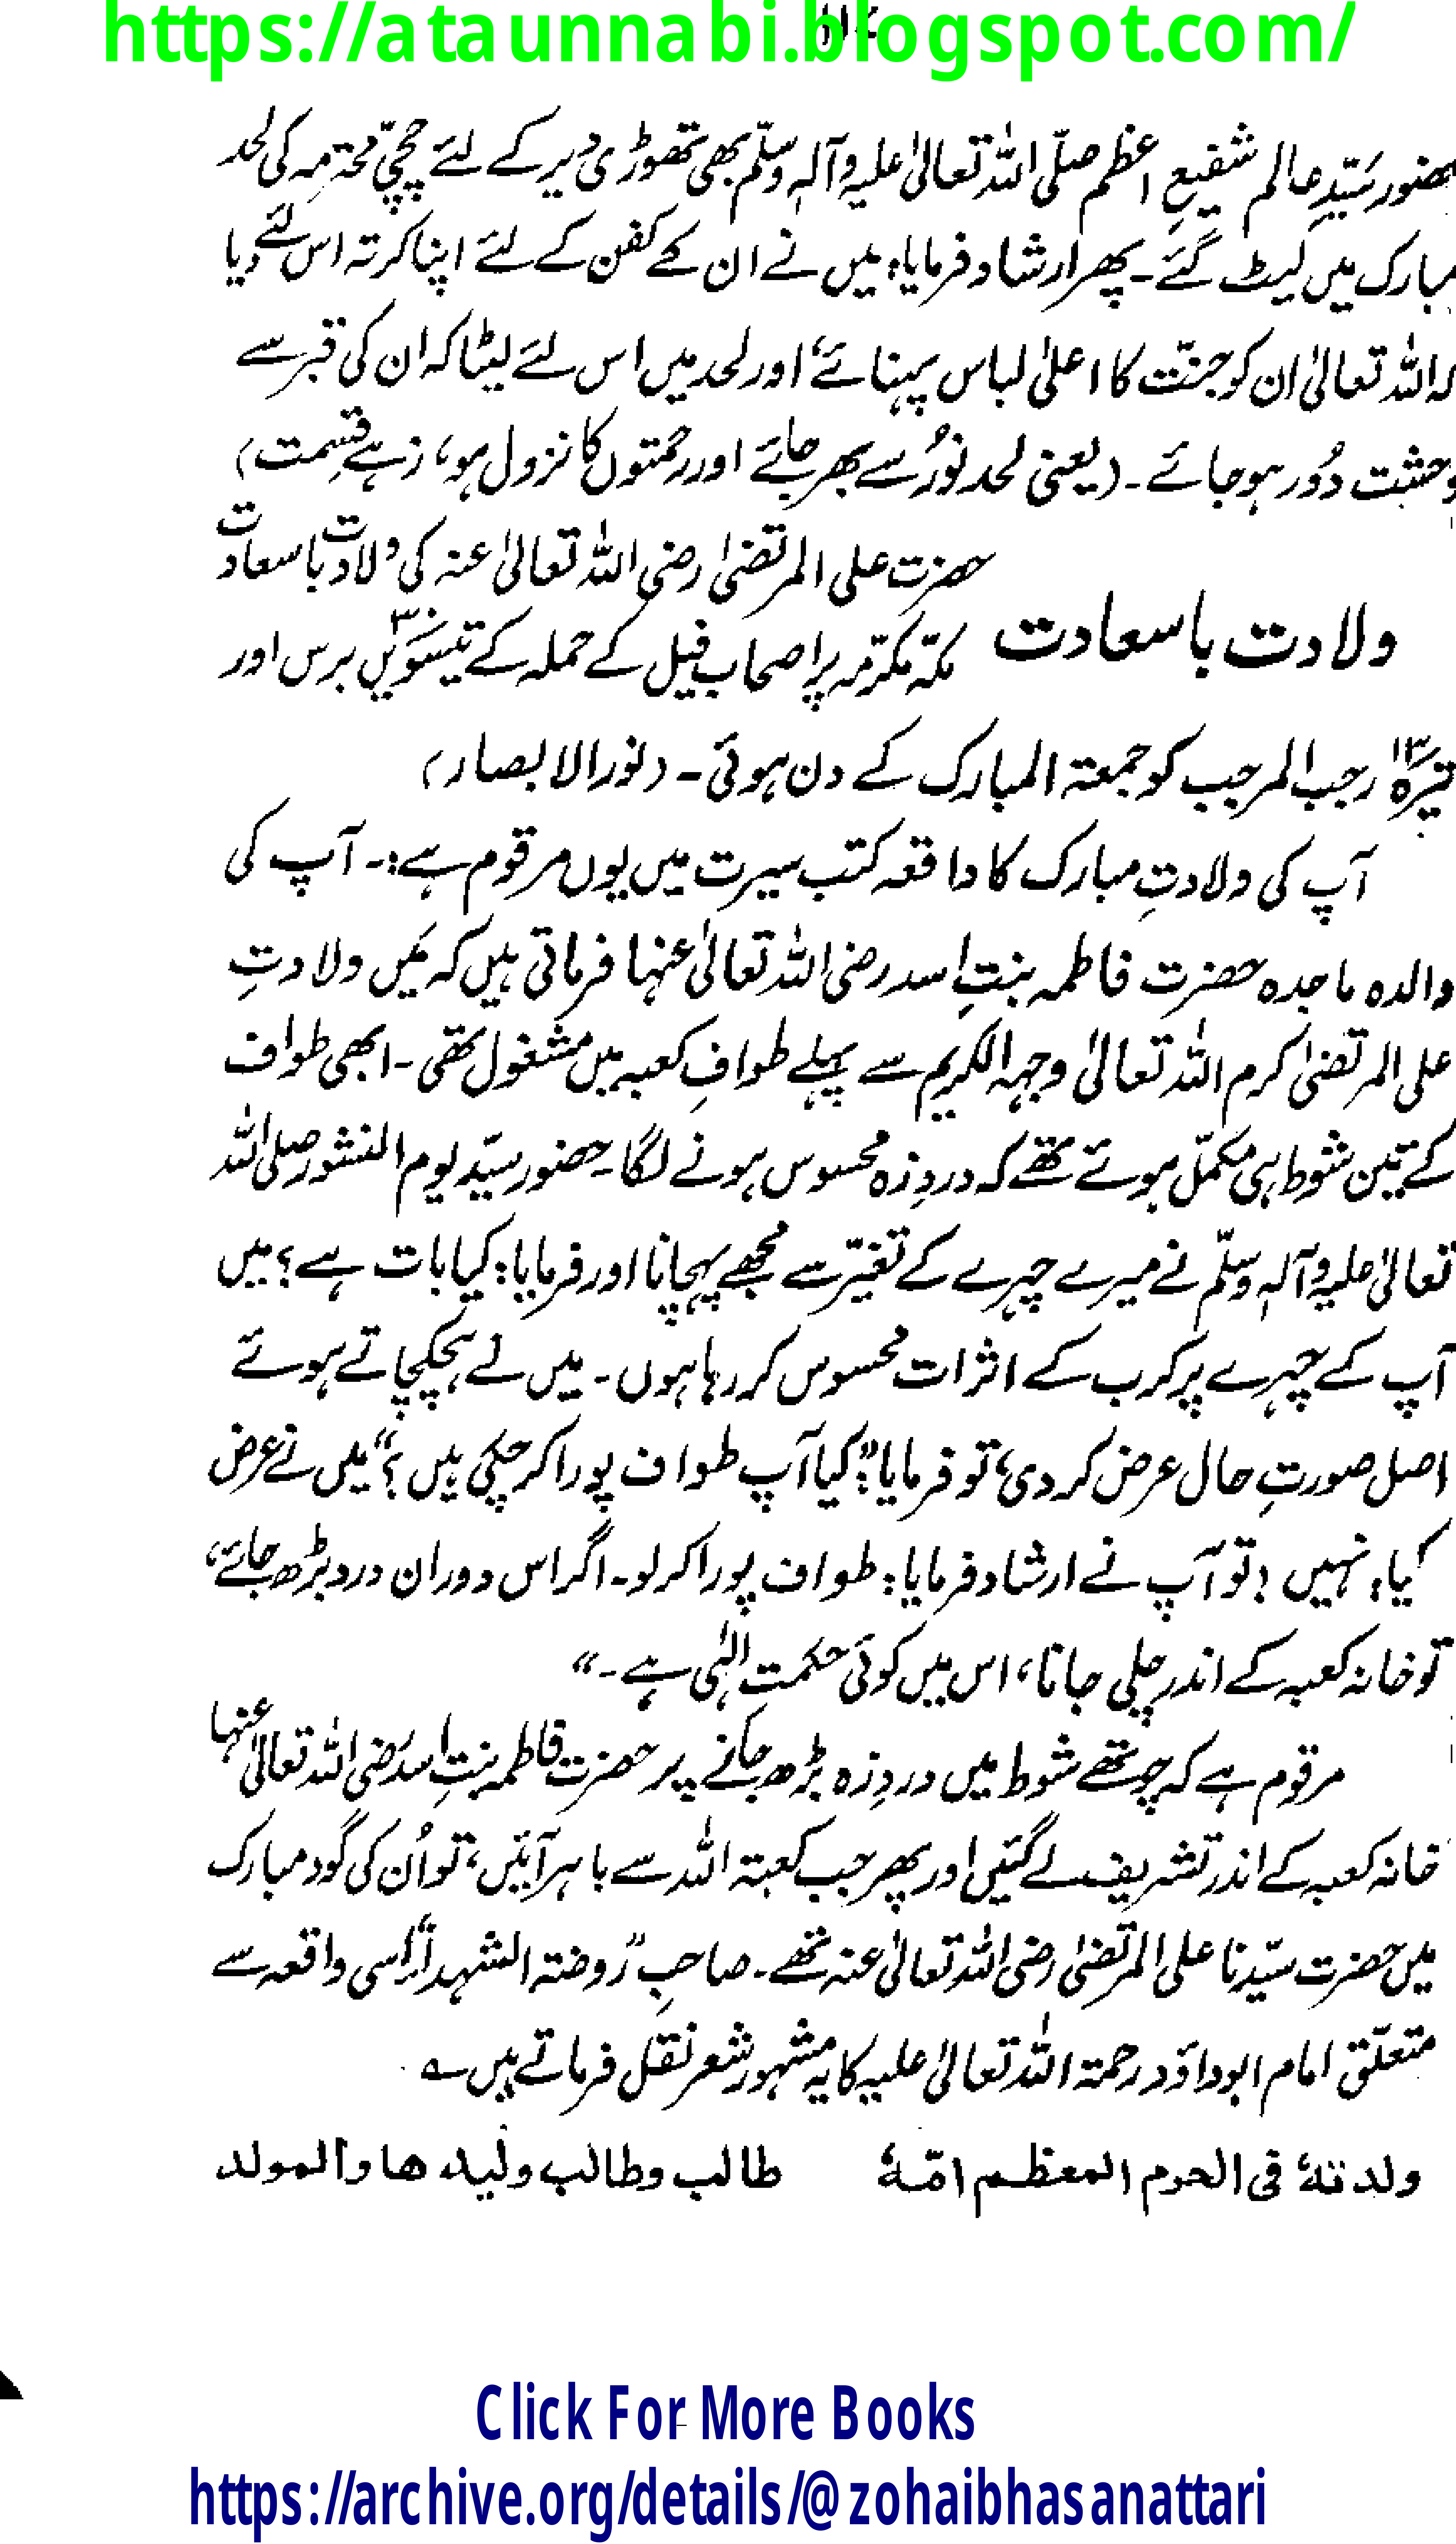 https://ataunnabi.blogspot.com/
حضور سیّدِ عالم شفیعِ اعظم صلّی اللہ تعالیٰ علیہ وآلہٖ وسلّم بھی تھوڑی دیر کے لئے چچّی محترمہ کی لحد
مبارک میں لیٹ گئے۔ پھر ارشاد فرمایا: میں نے ان کے کفن کے لئے اپنا کرتہ اس لئے دیا
کہ اللہ تعالیٰ ان کو جنّت کا اعلیٰ لباس پہنائے، اور لحد میں اس لئے لیٹا کہ ان کی قبر سے
وحشت دُور ہو جائے۔ (یعنی لحد نُور سے بھر جائے اور رحمتوں کا نزول ہو، زہے قِسمت)
حضرت علی المرتضیٰ رضی اللہ تعالیٰ عنہ کی ولادت باسعادت
ولادت باسعادت
مکّہ مکرّمہ پر اصحابِ فیل کے حملہ کے تیسویں۳۰ برس اور
تیرہ۱۳ رجب المرجب کو جمعۃ المبارک کے دن ہوئی۔ (نور الابصار)
آپ کی ولادتِ مبارک کا واقعہ کتب سیرت میں یوں مرقوم ہے:۔ آپ کی
والدہ ماجدہ حضرت فاطمہ بنتِ اسد رضی اللہ تعالیٰ عنہا فرماتی ہیں کہ مَیں ولادتِ
علی المرتضیٰ کرم اللہ تعالیٰ وجہہ الکریم سے پہلے طوافِ کعبہ میں مشغول تھی۔ ابھی طواف
کے تین شوط ہی مکمّل ہوئے تھے کہ دردِ زہ محسوس ہونے لگا۔ حضور سیّد یوم النشور صلی اللہ
تعالیٰ علیہ وآلہٖ وسلّم نے میرے چہرے کے تغیّر سے مجھے پہچانا اور فرمایا: کیا بات ہے؟ میں
آپ کے چہرے پر کرب کے اثرات محسوس کر رہا ہوں۔ میں نے ہچکچاتے ہوئے
اصل صورتِ حال عرض کر دی، تو فرمایا: "کیا آپ طواف پورا کر چکی ہیں؟" میں نے عرض
کیا: نہیں! تو آپ نے ارشاد فرمایا: طواف پورا کر لو۔ اگر اس دوران درد بڑھ جائے،
تو خانہ کعبہ کے اندر چلی جانا، اس میں کوئی حکمتِ الٰہی ہے۔"
مرقوم ہے کہ چوتھے شوط میں دردِ زہ بڑھ جانے پر حضرت فاطمہ بنتِ اسد رضی اللہ تعالیٰ عنہا
خانہ کعبہ کے اندر تشریف لے گئیں اور پھر جب کعبۃ اللہ سے باہر آئیں، تو اُن کی گود مبارک
میں حضرت سیّدنا علی المرتضیٰ رضی اللہ تعالیٰ عنہ تھے۔ صاحبِ "روضۃ الشہدا" اِسی واقعہ سے
متعلّق امام ابو داؤد رحمۃ اللہ تعالیٰ علیہ کا یہ مشہور شعر نقل فرماتے ہیں ؎
ولدتہٗ فی الحرم المعظم امّہٗ طالب وطالب ولیدھا والمولد
Click For More Books
https://archive.org/details/@zohaibhasanattari